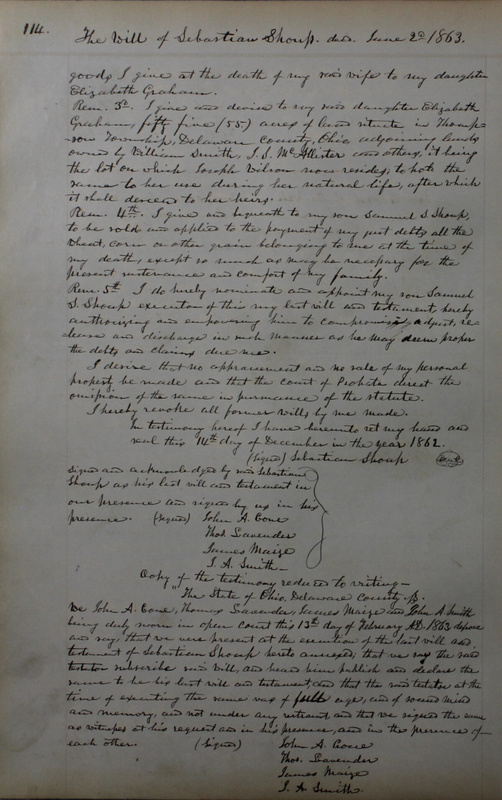 114.
The Will of Sebastian Shoup. decd. June 2d 1863.
goods I give at the death of my said wife to my daughter
Elizabeth Graham.
Item. 3d. I give and devise to my said daughter Elizabeth
Graham, fifty five (55) acres of land situate in Thomp-
son Township, Delaware County, Ohio adjoining lands
owned by William Smith, J. S. McAllister and others, it being
the lot on which Joseph Wilson now resides, to hold the
same to her use during her natural life, after which
it shall descend to her heirs.
Item. 4th. I give and bequeath to my son Samuel S Shoup,
to be sold and applied to the payment of my just debts all the
wheat, corn or other grain belonging to me at the time of
my death, except so much as may be necessary for the
present sustenance and comfort of my family.
Item. 5th I do hereby nominate and appoint my son Samuel
S. Shoup executor of this my last will and testament, hereby
authorizing and empowering him to compromise, adjust, re
lease and discharge in such manner as he may deem proper
the debts and claims due me.
I desire that no appraisement and no sale of my personal
property be made and that the court of Probate direct the
omission of the same in pursuance of the statute.
I hereby revoke all former wills by me made.
In testimony hereof I have hereunto set my hand and
seal this 14th day of December in the year 1862.
(Signed) Sebastian Shoup (seal)
Signed and acknowledged by said Sebastian
Shoup as his last will and testament in
our presence and signed by us in his
presence. (Signed) John A. Cone
Thos Lavender
James Maize
J. A. Smith
Copy of the testimony reduced to writing—
"The State of Ohio, Delaware County ss.
We John A. Cone, Thomas Lavender, James Maize and John A Smith
being duly sworn in open Court this 13th day of February A.D. 1863 depose
and say, that we were present at the execution of the last will and
testament of Sebastian Shoup hereto annexed; that we saw the said
testator subscribe said will, and heard him publish and declare the
same to be his last will and testament and that the said testator at the
time of executing the same was of full age, and of sound mind
and memory, and not under any restraint and that we signed the same
as witnesses at his request and in his presence, and in the presence of
each other. (Signed) John A. Cone
Thos. Lavender
James Maize
J. A. Smith.